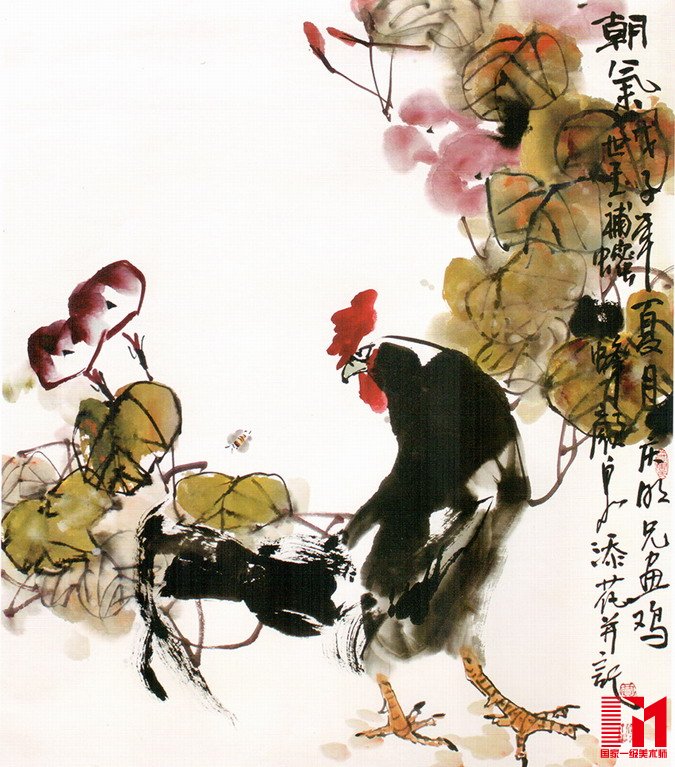 朝氣
戊子年夏月庆明兄画鸡
世玉補蜜蜂 添花并記
国家一级美术师